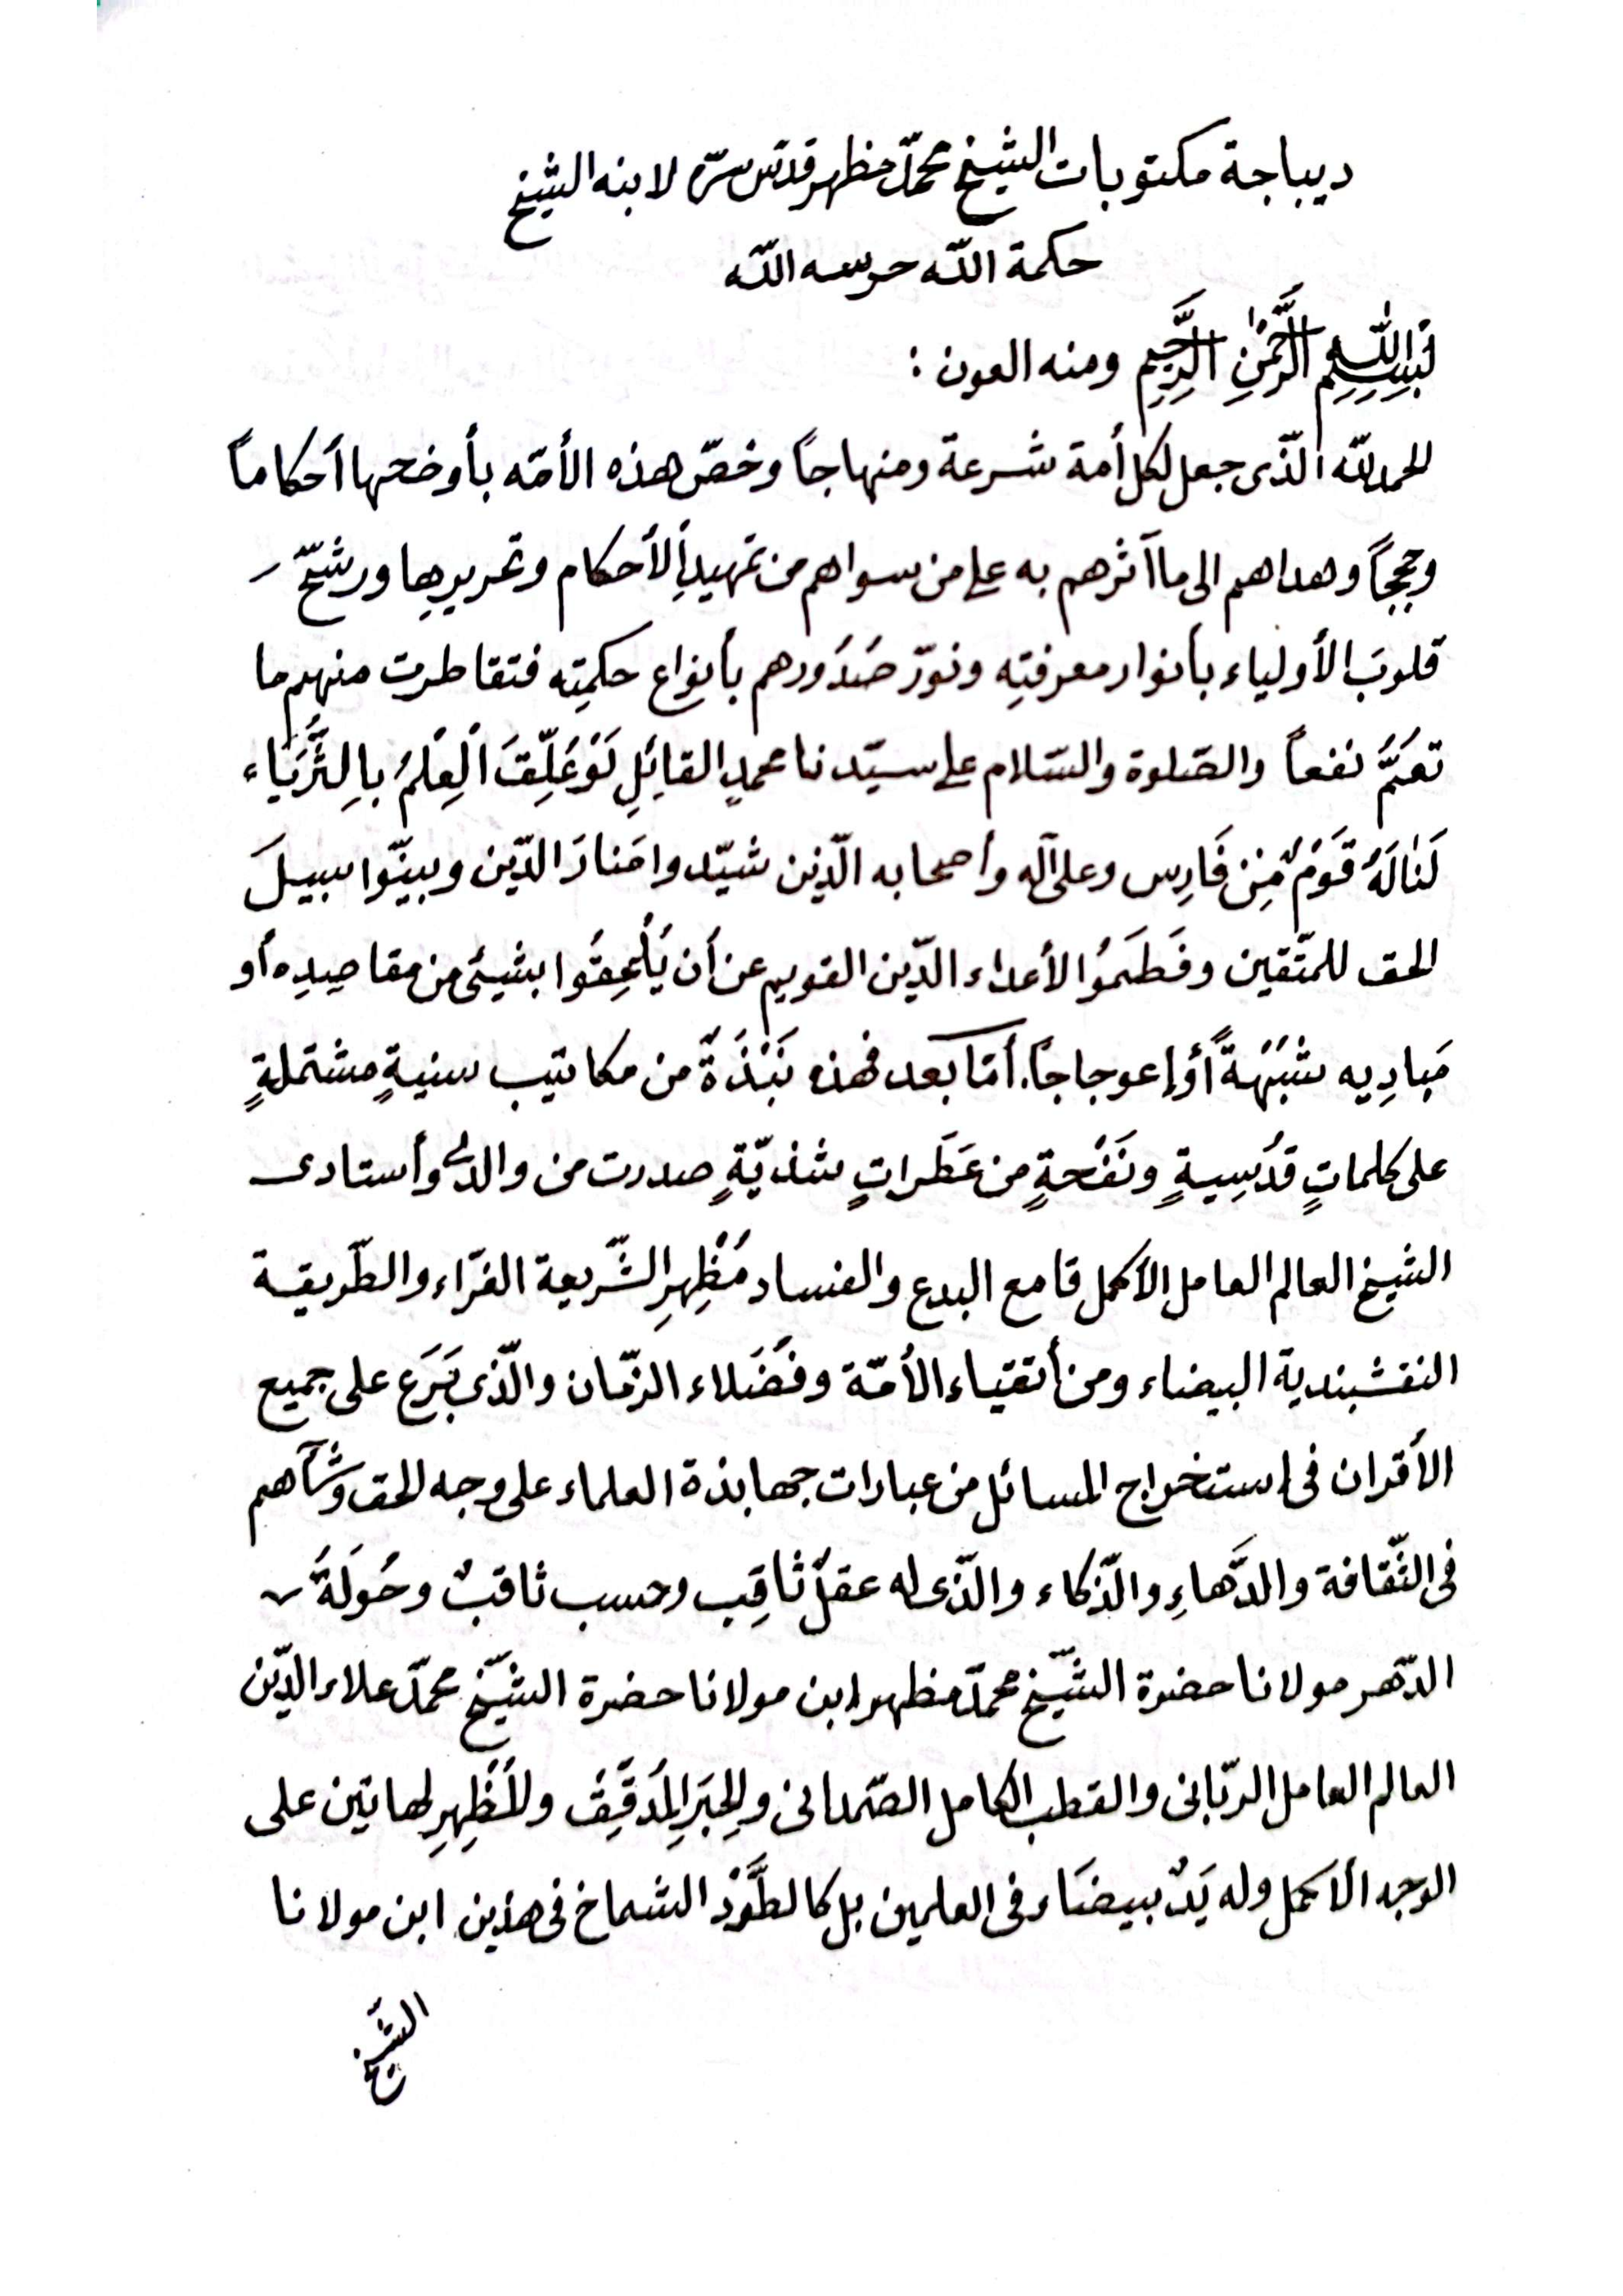 ديباجة مكتوبات الشيخ محمّد مظهر قدّس سرّه لابنه الشيخ
حكمة اللّه حرسه اللّه
بِسْمِ اللّٰهِ الرَّحْمٰنِ الرَّحِيمِ ومنه العون :
الحمد للّه الّذى جعل لكل أمة شرعة ومنهاجاً وخصّ هذه الأمّه بأوضحها أحكاماً
وحججاً وهداهم الى ما آثرهم به على من سواهم من تمهيدِ الأحكام وتحريرِها ورشّح
قلوبَ الأولياء بأنوار معرفتِه ونوّر صُدُورهم بأنواع حكمتِه فتقاطرت منهم ما
تعَمُّ نفعاً والصّلوة والسّلام على سيّدنا محمدٍ القائِلِ لَوْ عُلِّقَ الْعِلْمُ بِالثُّرَيَّاء
لَنَالَهُ قَوْمٌ مِنْ فَارِس وعلى آله وأصحابه الّذين شيّدوا مَنارَ الدّين وبيّنوا سبيلَ
الحق للمتّقين وفَطَمُوا الأعداء الدّين القويم عن أن يُلْحِقُوا بشيئ من مقاصِدِه أو
مَبادِيه شُبْهَةً أو إعوجاجاً. أمّا بعد فهذه نَبْذَةٌ من مكاتيب سنيةٍ مشتملةٍ
على كلماتٍ قدُسِيةٍ ونَفْحةٍ من عَطَراتٍ شذيّةٍ صدرت من والدى وأستادى
الشيخ العالم العامل الأكمل قامع البدع والفساد مُظْهِرِ الشّريعة الغرّاء والطّريقة
النقشبندية البيضاء ومن أتقياء الأمّة وفُضَلاء الزّمان والّذى بَرَع على جميع
الأقران فى إستخراج المسائل من عبارات جهابذة العلماء على وجه الحق وشآهم
فى الثّقافة والدَّهاءِ والذّكاء والّذى له عقلٌ ثاقِب وحسب ثاقبٌ وحُولَةُ
الدّهر مولانا حضرة الشّيخ محمّد مظهر ابن مولانا حضرة الشّيخ محمّد علاء الدّين
العالم العامل الربّانى والقطب الكامل الصّمدانى والحِبَرِ المُدَقِّقْ والمُظْهِرِ لهاتين على
الوجه الأكمل وله يَدٌ بيضَاء فى العلمين بل كالطَّوْد الشماخ فى هذين ابن مولانا
الشّيخ